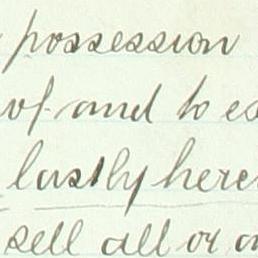 possession
of and to
lastly
sell all or